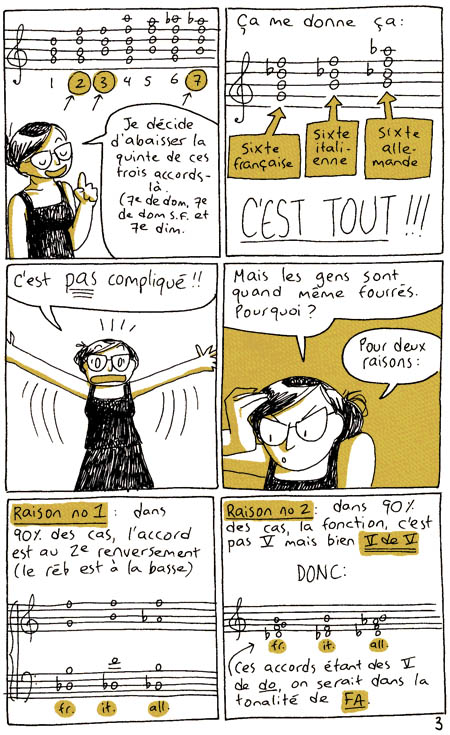 1 2 3 4 5 6 7
Je décide
d'abaisser la
quinte de ces
trois accords-
là.
(7e de dom, 7e
de dom s.f. et
7e dim.
Ça me donne ça:
Sixte
française
Sixte
itali-
enne
Sixte
alle-
mande
C'EST TOUT!!!
C'est pas compliqué!!
Mais les gens sont
quand même fourrés.
Pourquoi?
Pour deux
raisons:
Raison no 1: dans
90% des cas, l'accord
est au 2e renversement
(le réb est à la basse)
fr. it. all.
Raison no 2: dans 90%
des cas, la fonction, c'est
pas V mais bien V de V
DONC:
fr. it. all.
(Ces accords étant des V
de do, on serait dans la
tonalité de FA.
3